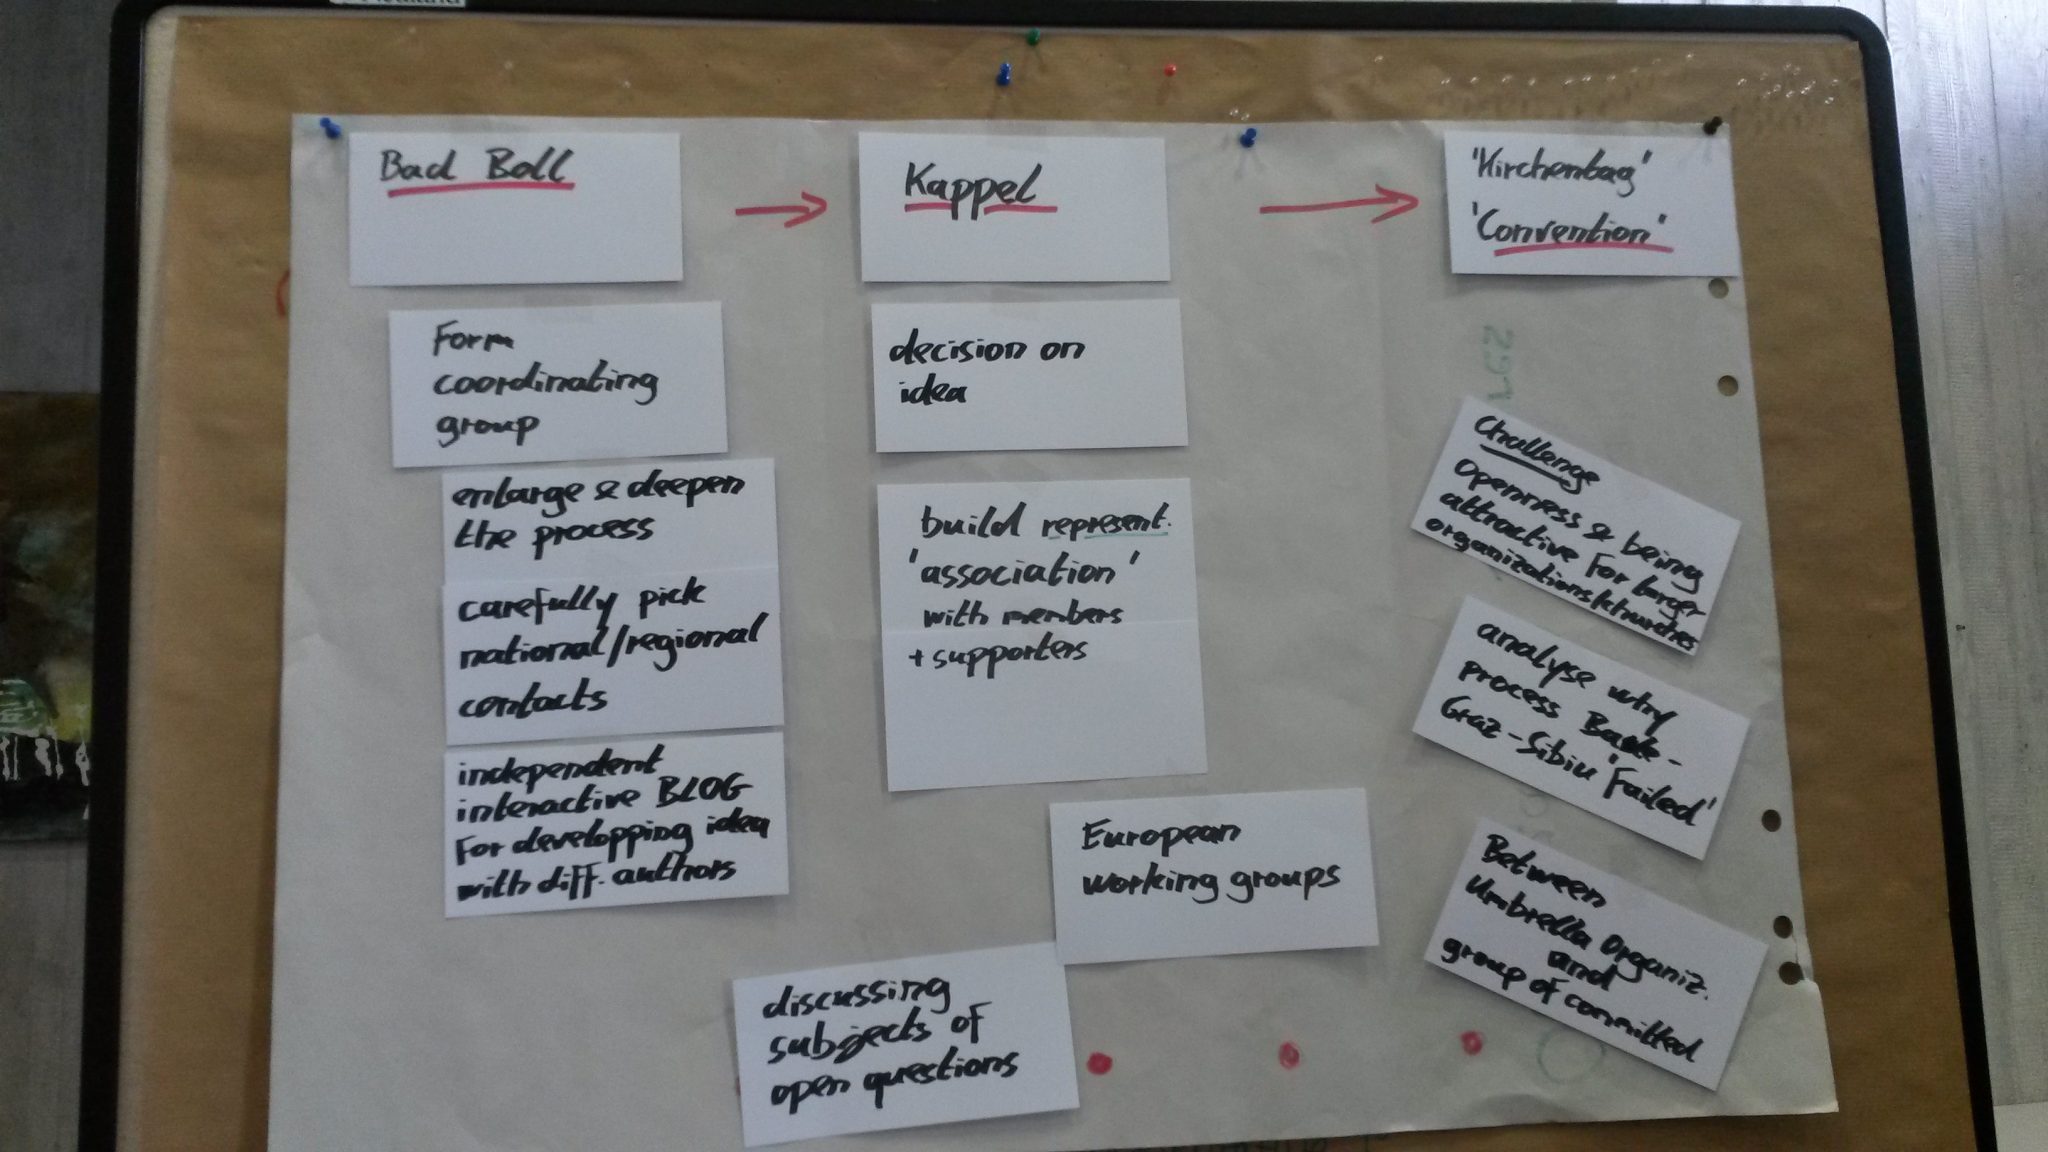 Bad Boll
Form
coordinating
group
enlarge & deepen
the process
carefully pick
national/regional
contacts
independent
interactive BLOG
For developping idea
with diff. authors
Kappel
decision on
idea
build represent.
'association'
with members
+ supporters
European
working groups
discussing
subjects of
open questions
'Kirchentag'
'Convention'
Challenge
Openness & being
attractive For larger
organizations/churches
analyse why
process
Graz-Sibiu 'Failed'
Between
Umbrella Organiz.
and
group of committed